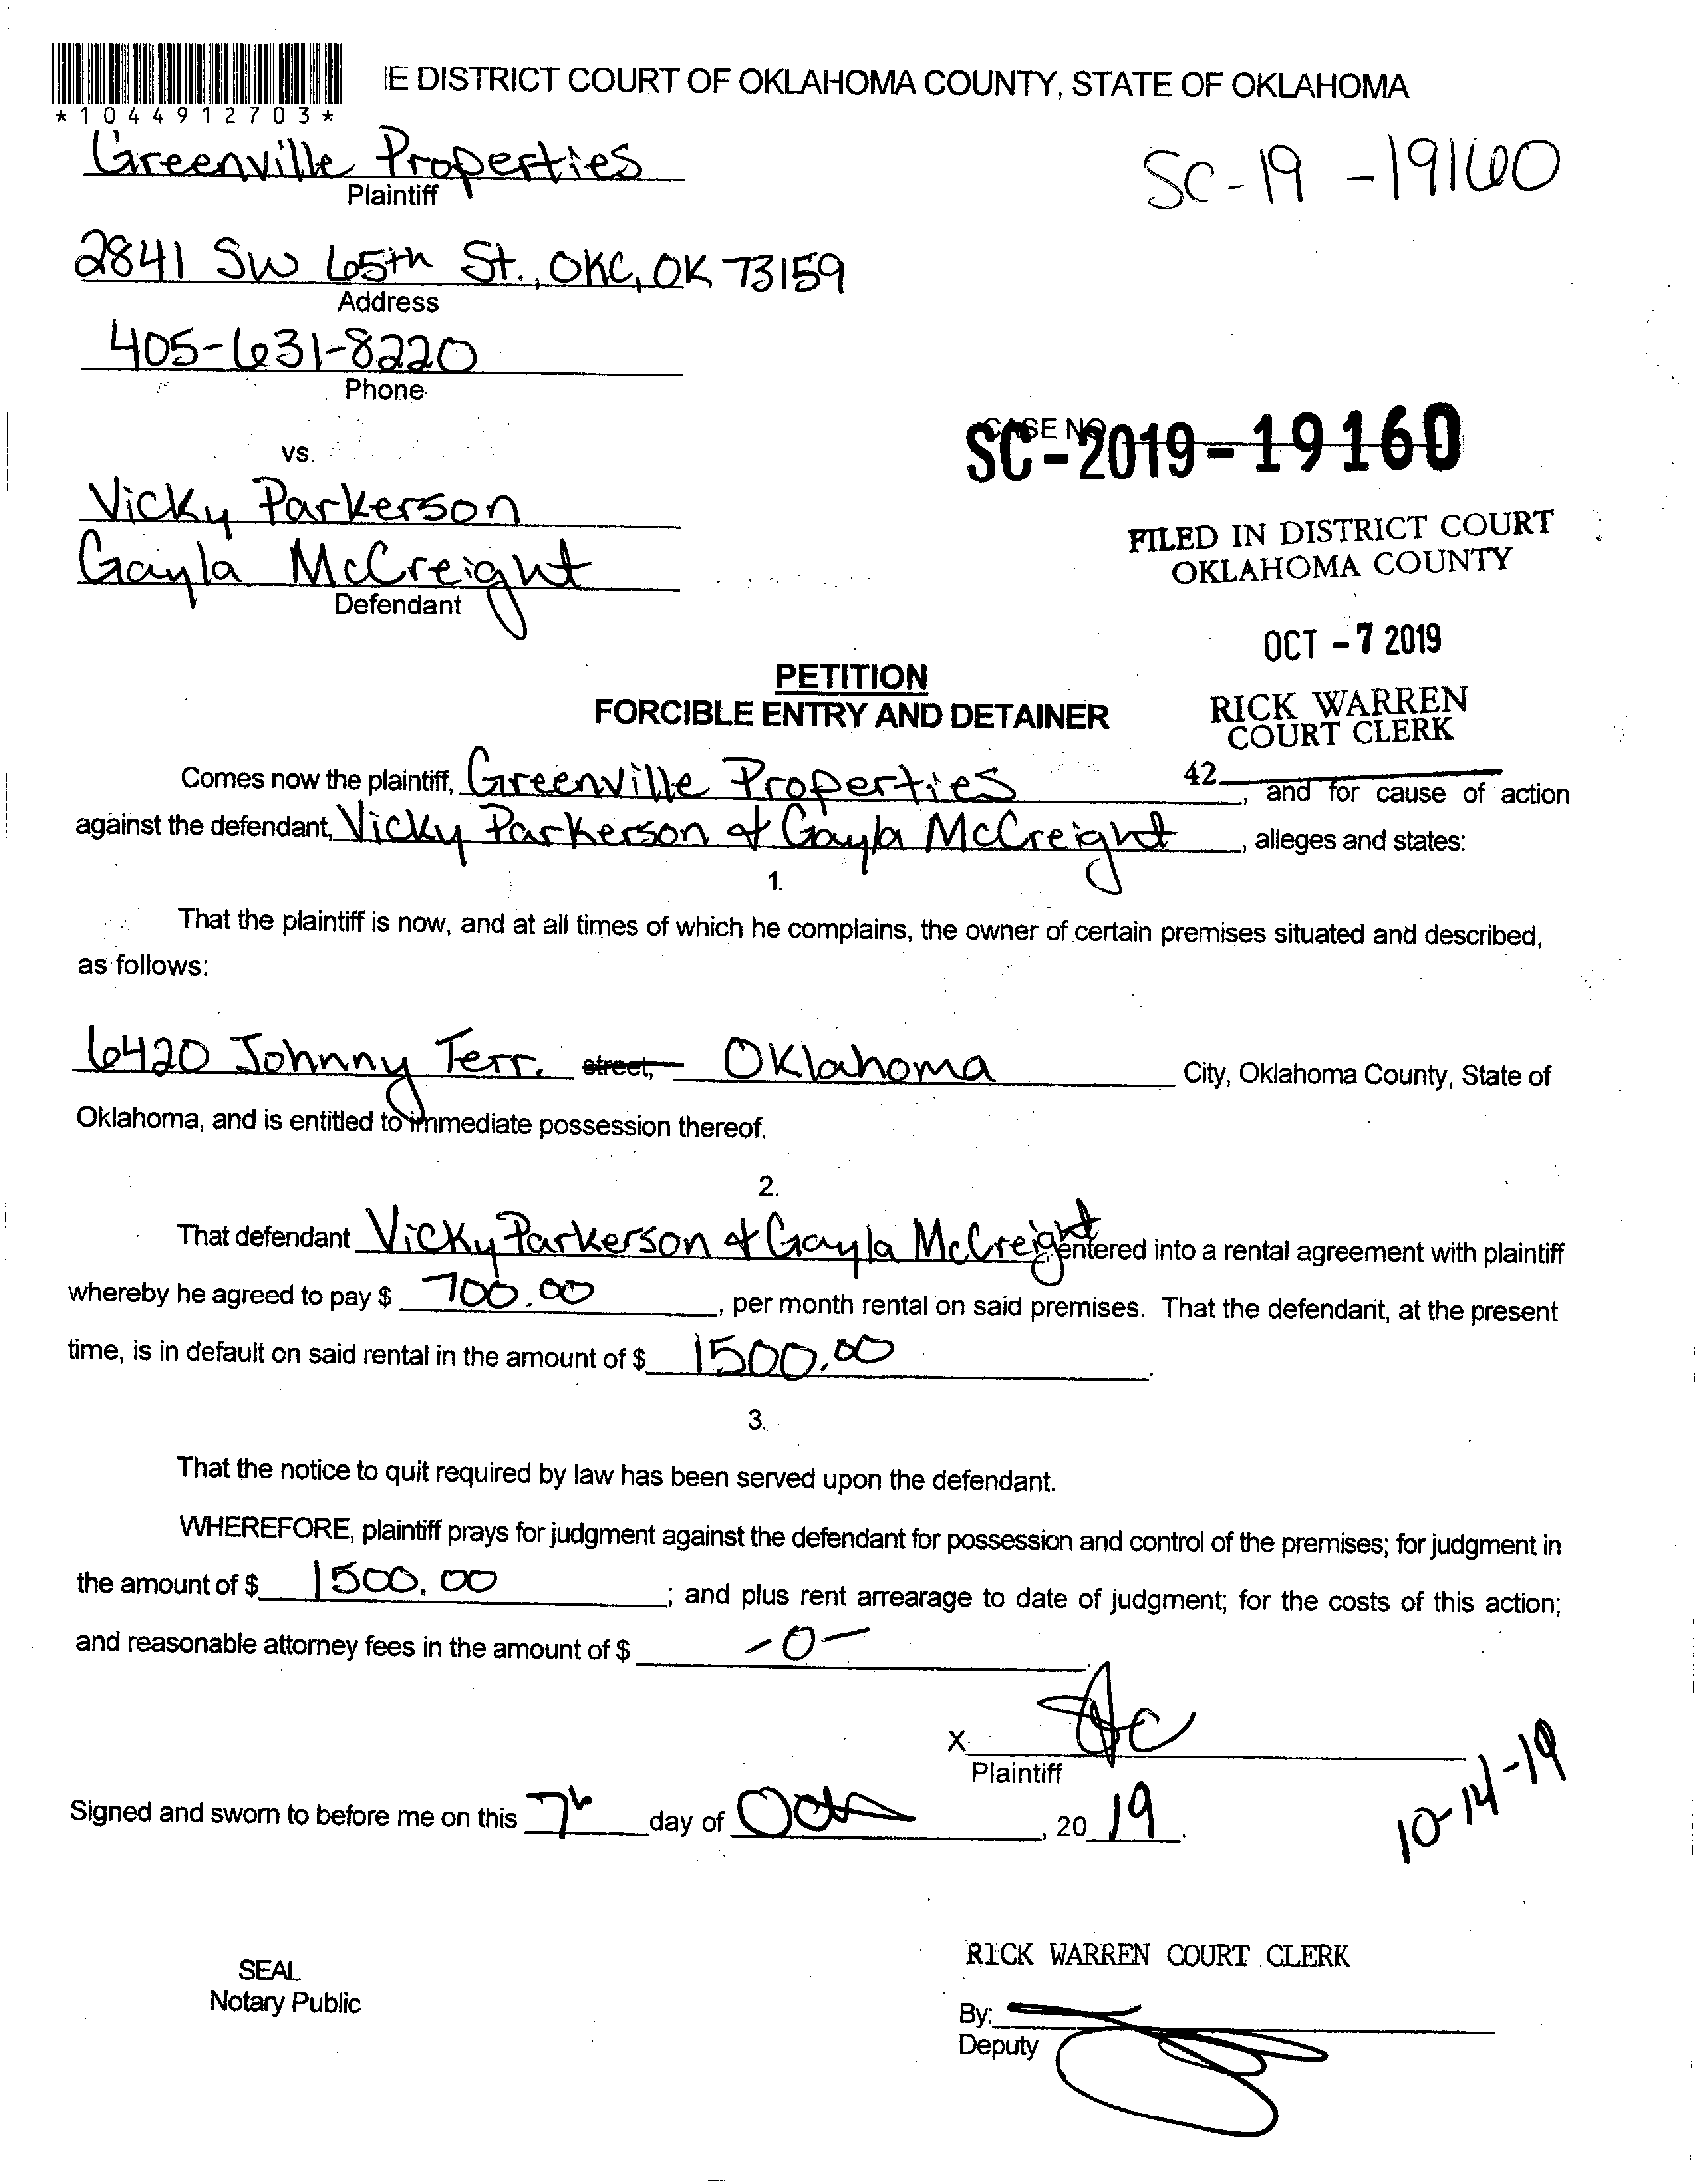 IE DISTRICT COURT OF OKLAHOMA COUNTY, STATE OF OKLAHOMA
*1044912703*
Greenville Properties
Plaintiff
SC-19-19160
2841 SW 65th St., OKC, OK 73159
Address
405-631-8220
Phone
CASE NO.
SC-2019-19160
vs.
Vicky Parkerson
Gayla McCreight
Defendant
FILED IN DISTRICT COURT
OKLAHOMA COUNTY
OCT - 7 2019
PETITION
FORCIBLE ENTRY AND DETAINER
RICK WARREN
COURT CLERK
42
Comes now the plaintiff, Greenville Properties, and for cause of action
against the defendant, Vicky Parkerson & Gayla McCreight, alleges and states:
1.
That the plaintiff is now, and at all times of which he complains, the owner of certain premises situated and described,
as follows:
6420 Johnny Terr. street, Oklahoma City, Oklahoma County, State of
Oklahoma, and is entitled to immediate possession thereof.
2.
That defendant Vicky Parkerson & Gayla McCreight entered into a rental agreement with plaintiff
whereby he agreed to pay $ 700.00, per month rental on said premises. That the defendant, at the present
time, is in default on said rental in the amount of $ 1500.00.
3.
That the notice to quit required by law has been served upon the defendant.
WHEREFORE, plaintiff prays for judgment against the defendant for possession and control of the premises; for judgment in
the amount of $ 1500.00; and plus rent arrearage to date of judgment; for the costs of this action;
and reasonable attorney fees in the amount of $ -0-
X
Plaintiff
10-14-19
Signed and sworn to before me on this 7th day of Oct, 2019.
SEAL
Notary Public
RICK WARREN COURT CLERK
By:
Deputy